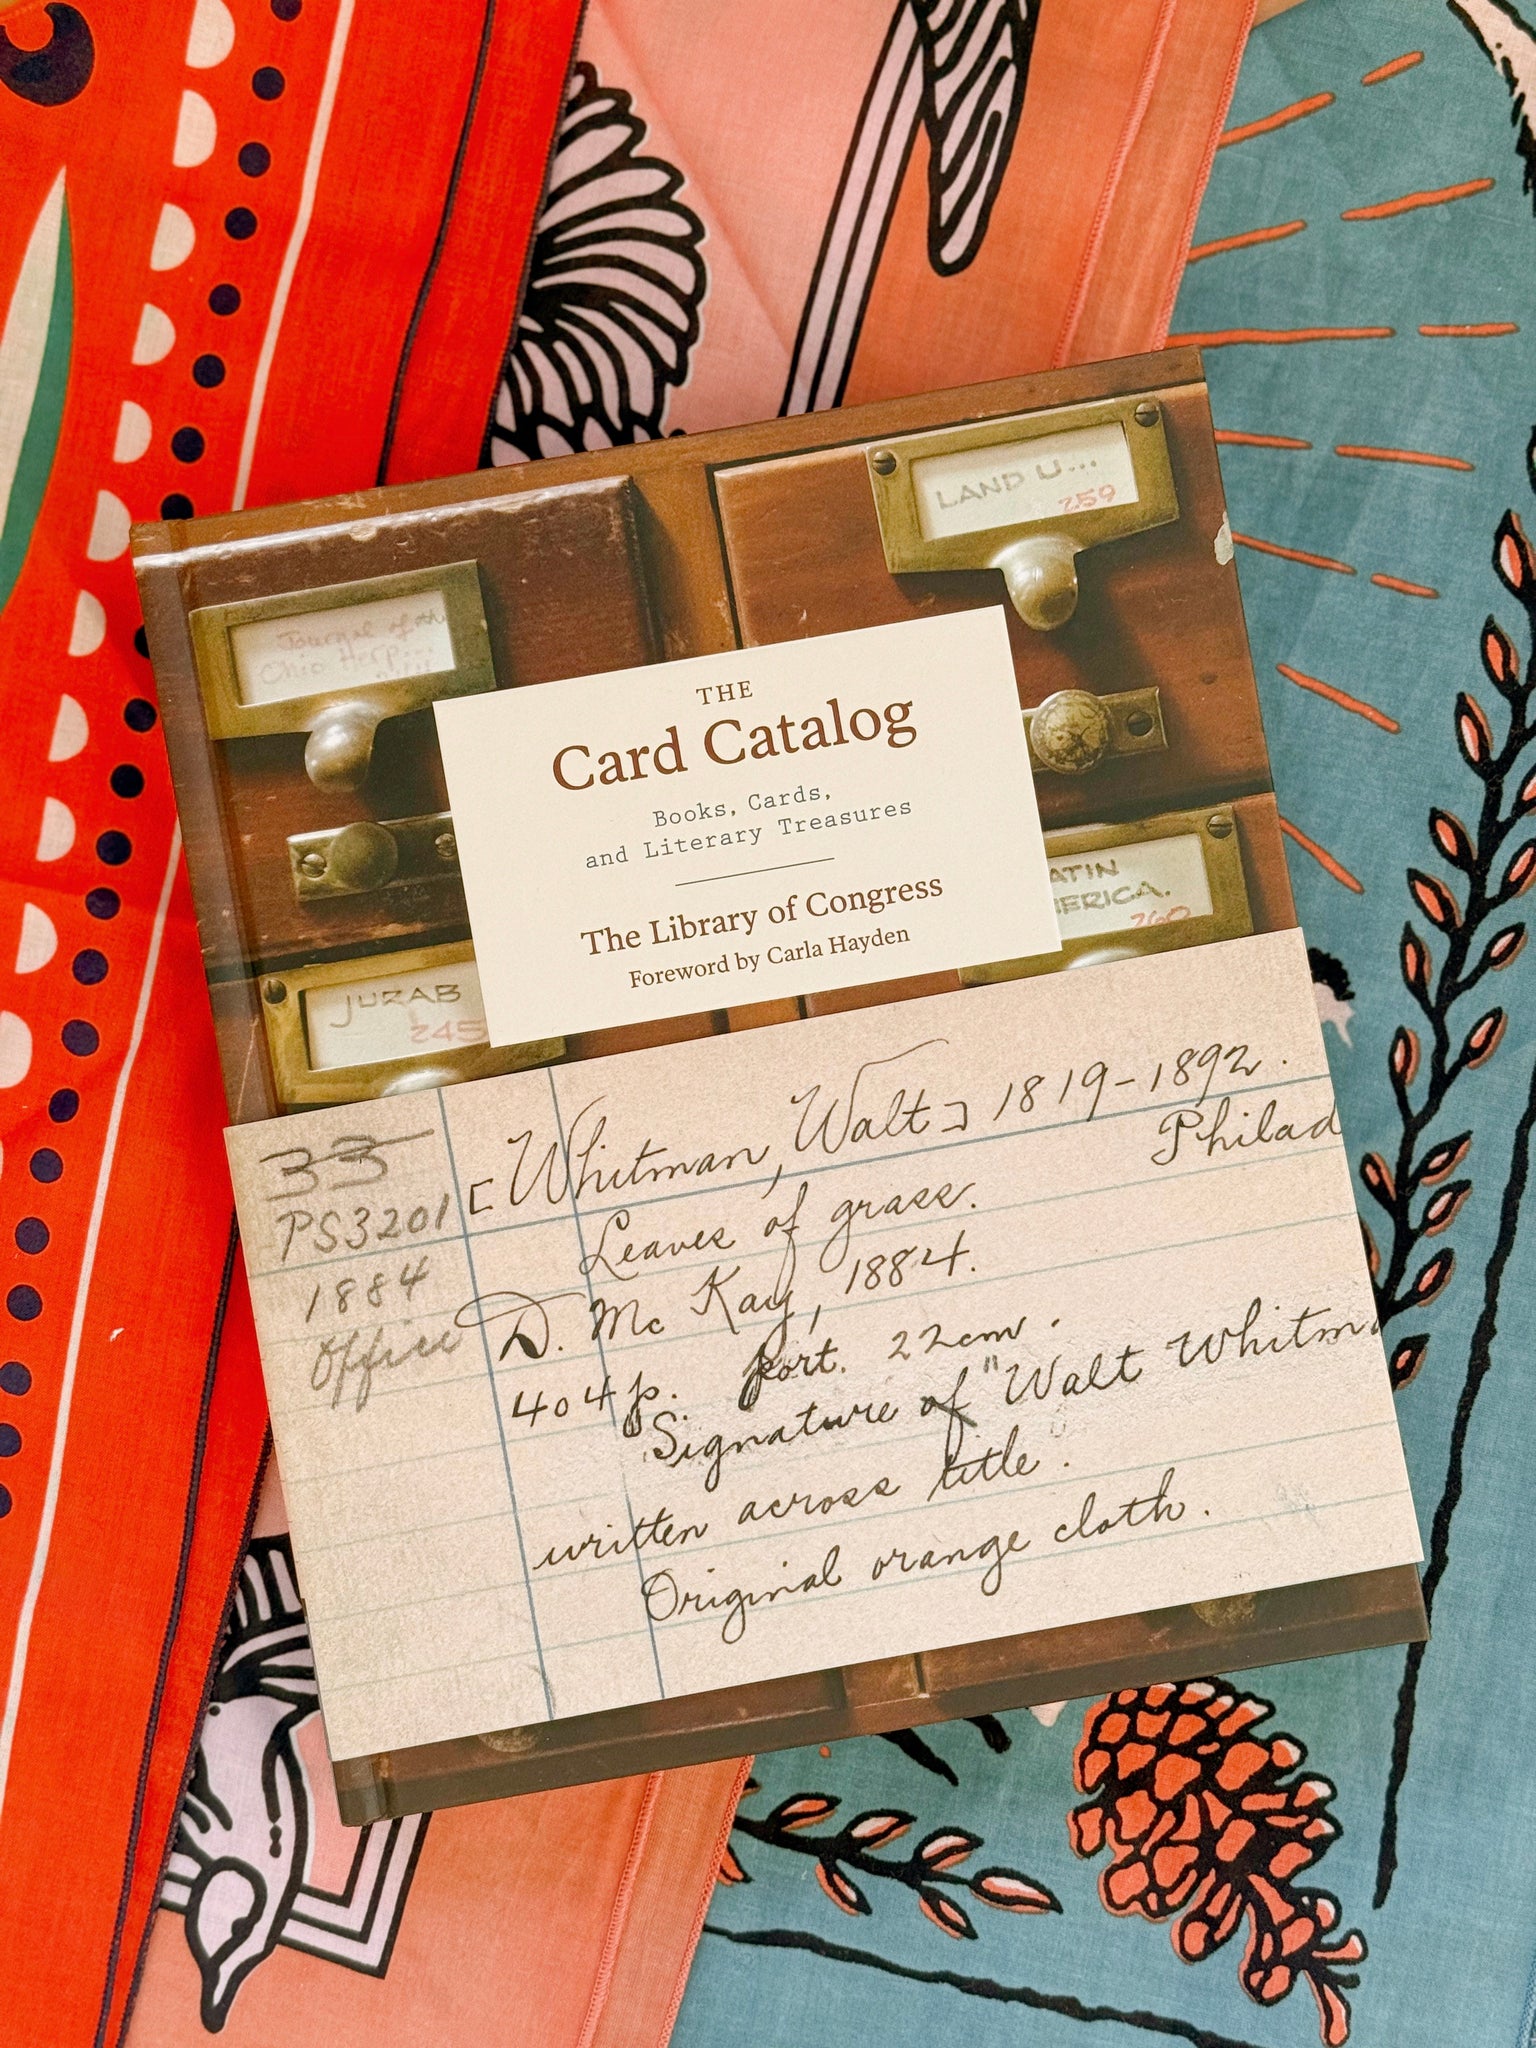 LAND U...
259
Journal of the
Ohio Herp...
THE
Card Catalog
Books, Cards,
and Literary Treasures
The Library of Congress
Foreword by Carla Hayden
ATIN
ERICA.
260
JURAB
245
33
PS3201
1884
Office
[Whitman, Walt] 1819-1892.
Leaves of grass. Philad
D. McKay, 1884.
404 p. port. 22cm.
Signature of "Walt Whitm
written across title.
Original orange cloth.